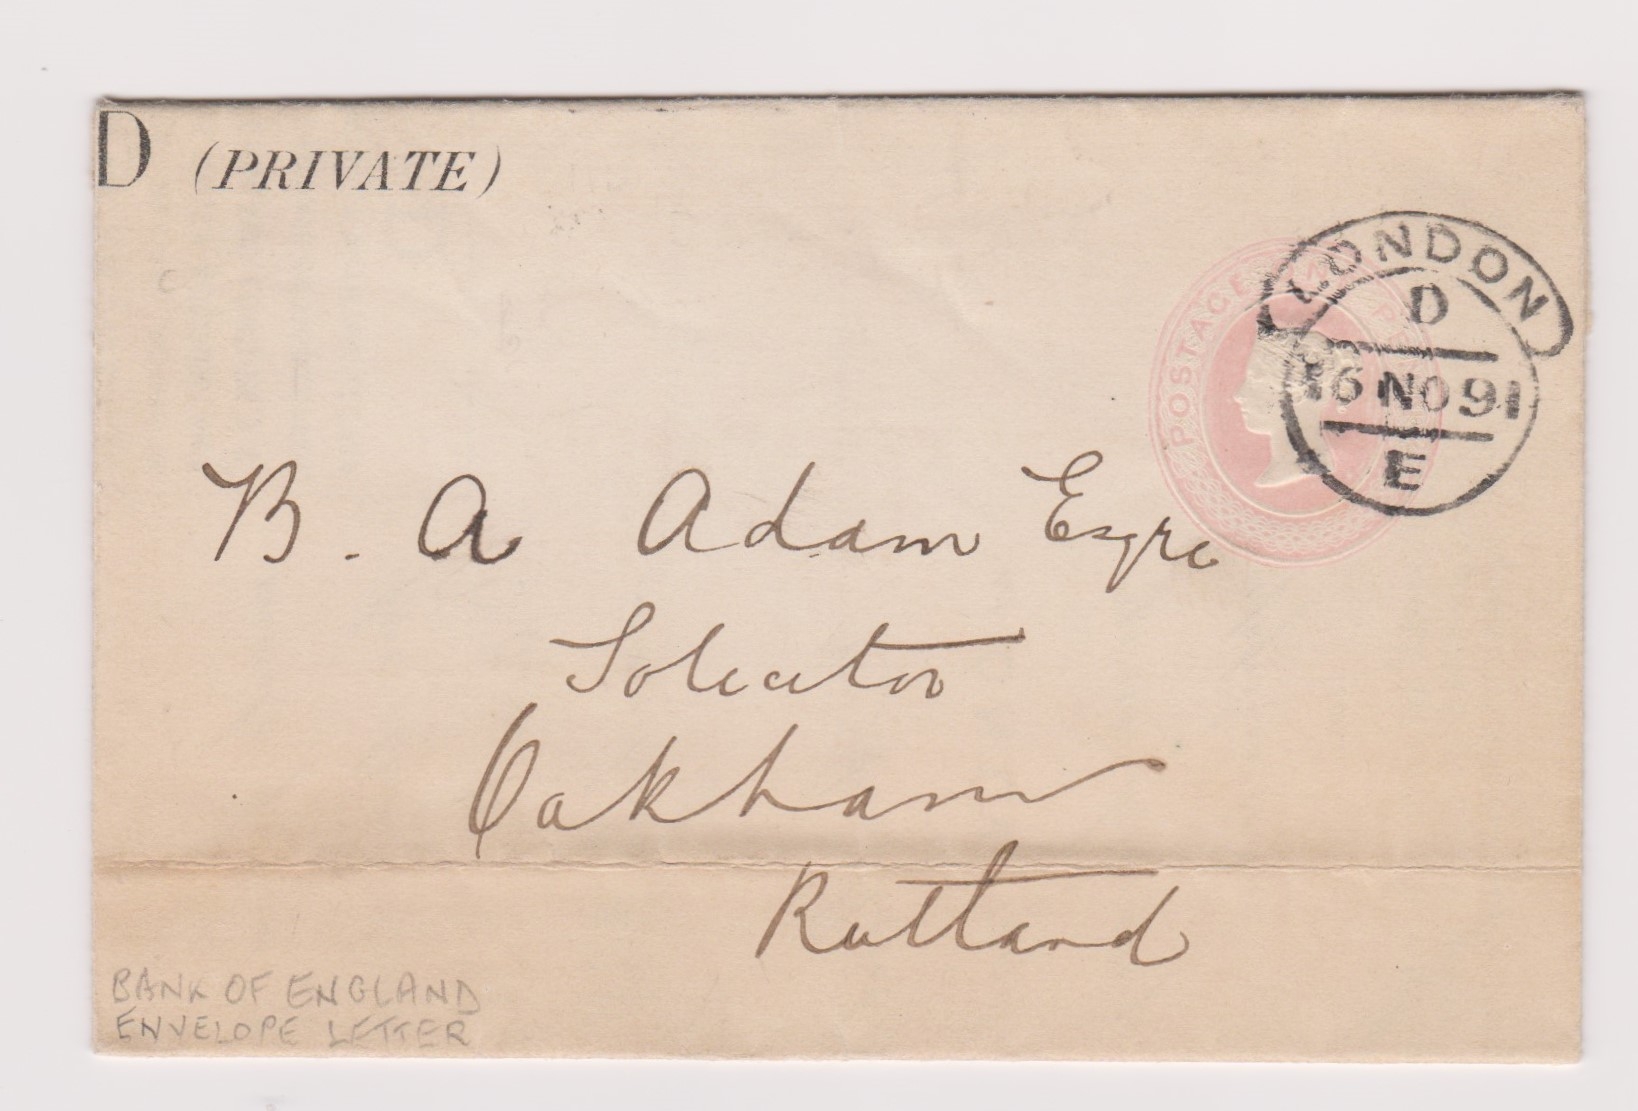 D (PRIVATE)
POSTAGE
LONDON
D
16 NO 91
E
B. A Adam Esqre
Solicitor
Oakham
Rutland
BANK OF ENGLAND
ENVELOPE LETTER